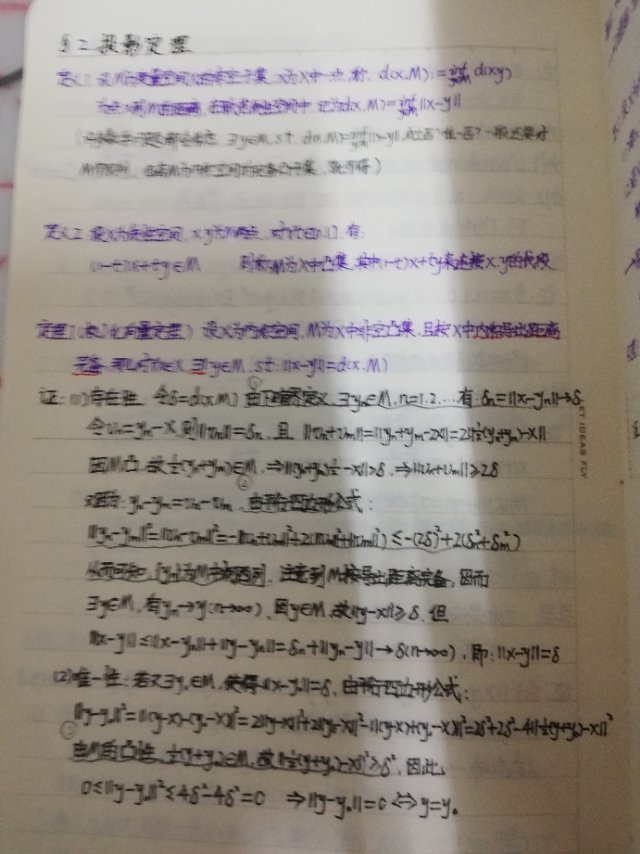 §2 投影定理
定义1 设M为度量空间X的非空子集, x为X中一点, 称 d(x,M):=inf d(x,y)
为点x到M的距离, 在赋范线性空间中, 记为d(x,M)=inf||x-y||
∃y∈M, s.t. d(x,M)=inf||x-y||
定义2 设X为线性空间, x,y为 两点, 对∀t∈[0,1], 有:
(1-t)x+ty∈M 则称M为X中凸集, 其中(1-t)x+ty表述接x,y的线段
定理1 (极小化向量定理) 设X为内积空间, M为X中非空凸集, 且按X中内积导出距离
完备, 那么对∀x∈X, ∃!y∈M, st: ||x-y||=d(x,M)
证: (1)存在性, 令δ=d(x,M) ①由下确界定义, ∃yₙ∈M, n=1,2,...有: δₙ=||x-yₙ||→δ
令vₙ=yₙ-x, 则||vₙ||=δₙ, 且 ||vₙ+vₘ||=||yₙ+yₘ-2x||=2||½(yₙ+yₘ)-x||
因M凸, 故½(yₙ+yₘ)∈M, ⇒||(yₙ+yₘ)½-x||≥δ, ⇒||vₙ+vₘ||≥2δ
又因为: yₙ-yₘ=vₙ-vₘ, ②由平行四边形公式:
||yₙ-yₘ||²=||vₙ-vₘ||²=-||vₙ+vₘ||²+2(||vₙ||²+||vₘ||²)≤-(2δ)²+2(δₙ²+δₘ²)
从而可知, {yₙ}为M中柯西列, 注意到M按导出距离完备, 因而
∃y∈M, 有yₙ→y(n→∞), 因y∈M, 故||y-x||≥δ, 但
||x-y||≤||x-yₙ||+||y-yₙ||=δₙ+||yₙ-y||→δ(n→∞), 即: ||x-y||=δ
(2)唯一性: 若又∃y₀∈M, 使得||x-y₀||=δ, 由平行四边形公式:
||y-y₀||²=||(y-x)-(y₀-x)||²=2||y-x||²+2||y₀-x||²-||(y-x)+(y₀-x)||²=2δ²+2δ²-4||½(y+y₀)-x||²
③由M的凸性, ½(y+y₀)∈M, 故||½(y+y₀)-x||²≥δ², 因此,
0≤||y-y₀||²≤4δ²-4δ²=0 ⇒||y-y₀||=0⇔y=y₀
ET IDEAS FLY